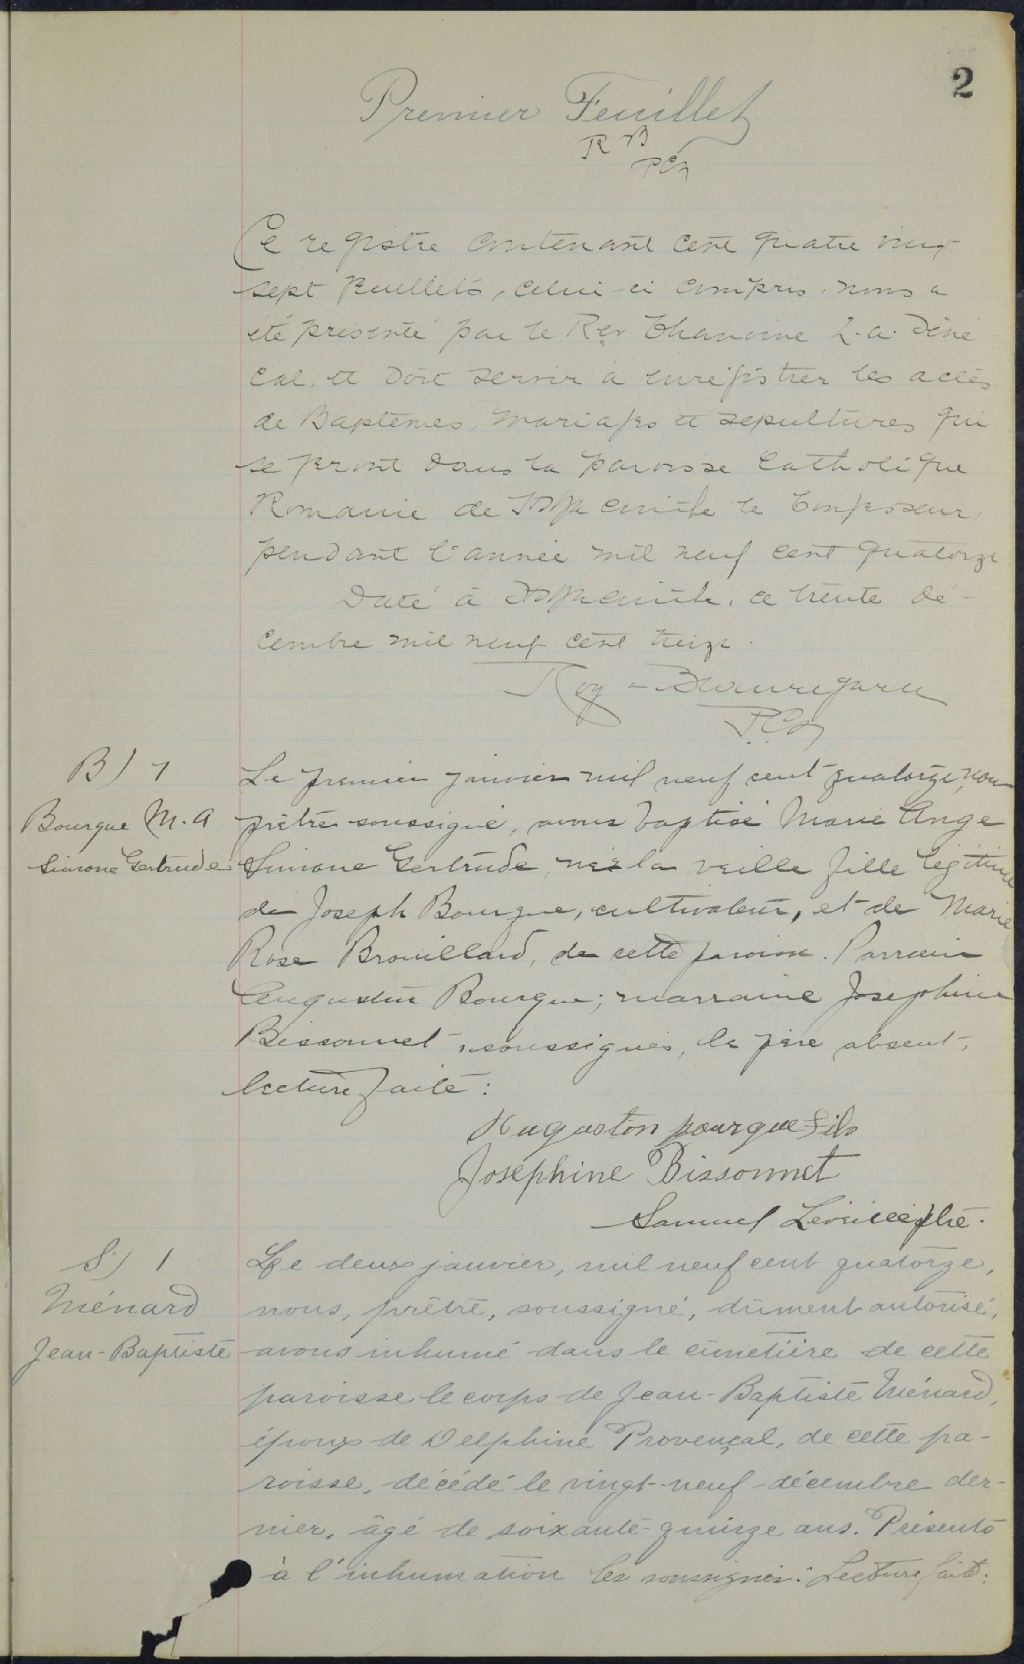 2
Premier Feuillet
R B
PCS
Ce registre contenant cent quatre vingt
sept feuillets, celui-ci compris, nous a
été présenté par le Rev Chanoine L. A. Séné
cal, et doit servir à enregistrer les actes
de Baptêmes, mariages et sépultures qui
se feront dans la paroisse Catholique
Romaine de St Hyacinthe le Confesseur,
pendant l'année mil neuf cent quatorze
Daté à St Hyacinthe, ce trente dé-
cembre mil neuf cent treize.
Roy-Beauregard
PCS
B) 1
Bourque M. A
Simone Gertrude
Le premier janvier mil neuf cent quatorze, nous
prêtre soussigné, avons baptisé Marie Ange
Simone Gertrude, née la veille fille légitime
de Joseph Bourque, cultivateur, et de Marie
Rose Brouillard, de cette paroisse. Parrain
Augustin Bourque; marraine Josephine
Bissonnet soussignés, le père absent,
lecture faite:
Auguston pourque fils
Joséphine Bissonnet
Samuel ptre.
S) 1
Ménard
Jean-Baptiste
Le deux janvier, mil neuf cent quatorze,
nous, prêtre, soussigné, dûment autorisé,
avons inhumé dans le cimetière de cette
paroisse le corps de Jean-Baptiste Ménard,
époux de Delphine Provençal, de cette pa-
roisse, décédé le vingt-neuf décembre der-
nier, âgé de soixante-quinze ans. Présents
à l'inhumation les soussignés: Lecture faite: